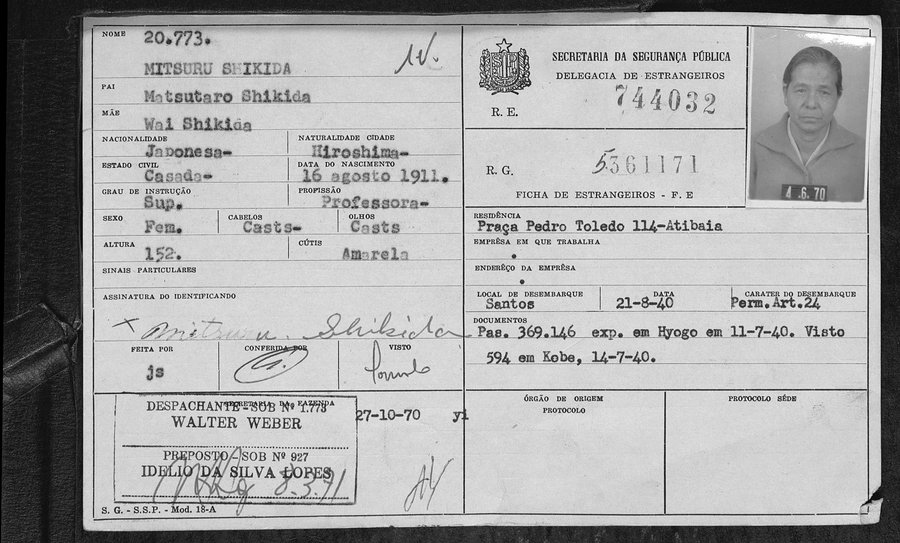 NOME 20.773.
MITSURU SHIKIDA
PAI
Matsutaro Shikida
MÃE
Wai Shikida
NACIONALIDADE NATURALIDADE CIDADE
Japonesa- Hiroshima-
ESTADO CIVIL DATA DO NASCIMENTO
Casada- 16 agosto 1911.
GRAU DE INSTRUÇÃO PROFISSÃO
Sup. Professora-
SEXO CABELOS OLHOS
Fem. Casts- Casts
ALTURA CÚTIS
152. Amarela
SINAIS PARTICULARES
ASSINATURA DO IDENTIFICANDO
x Mitsuru Shikida
FEITA POR CONFERIDA POR VISTO
js
SECRETARIA DA FAZENDA
DESPACHANTE-SOB Nº 1.773
WALTER WEBER
PREPOSTO-SOB Nº 927
IDELIO DA SILVA LOPES
8.3.71
27-10-70 yi
S. G. - S.S.P. - Mod. 18-A
SECRETARIA DA SEGURANÇA PÚBLICA
DELEGACIA DE ESTRANGEIROS
R. E. 744032
R. G. 5361171
FICHA DE ESTRANGEIROS - F. E
4 .6. 70
RESIDÊNCIA
Praça Pedro Toledo 114-Atibaia
EMPRÊSA EM QUE TRABALHA
ENDERÊÇO DA EMPRÊSA
LOCAL DE DESEMBARQUE DATA CARATER DO DESEMBARQUE
Santos 21-8-40 Perm.Art.24
DOCUMENTOS
Pas. 369.146 exp. em Hyogo em 11-7-40. Visto
594 em Kobe, 14-7-40.
ÓRGÃO DE ORIGEM PROTOCOLO SÉDE
PROTOCOLO